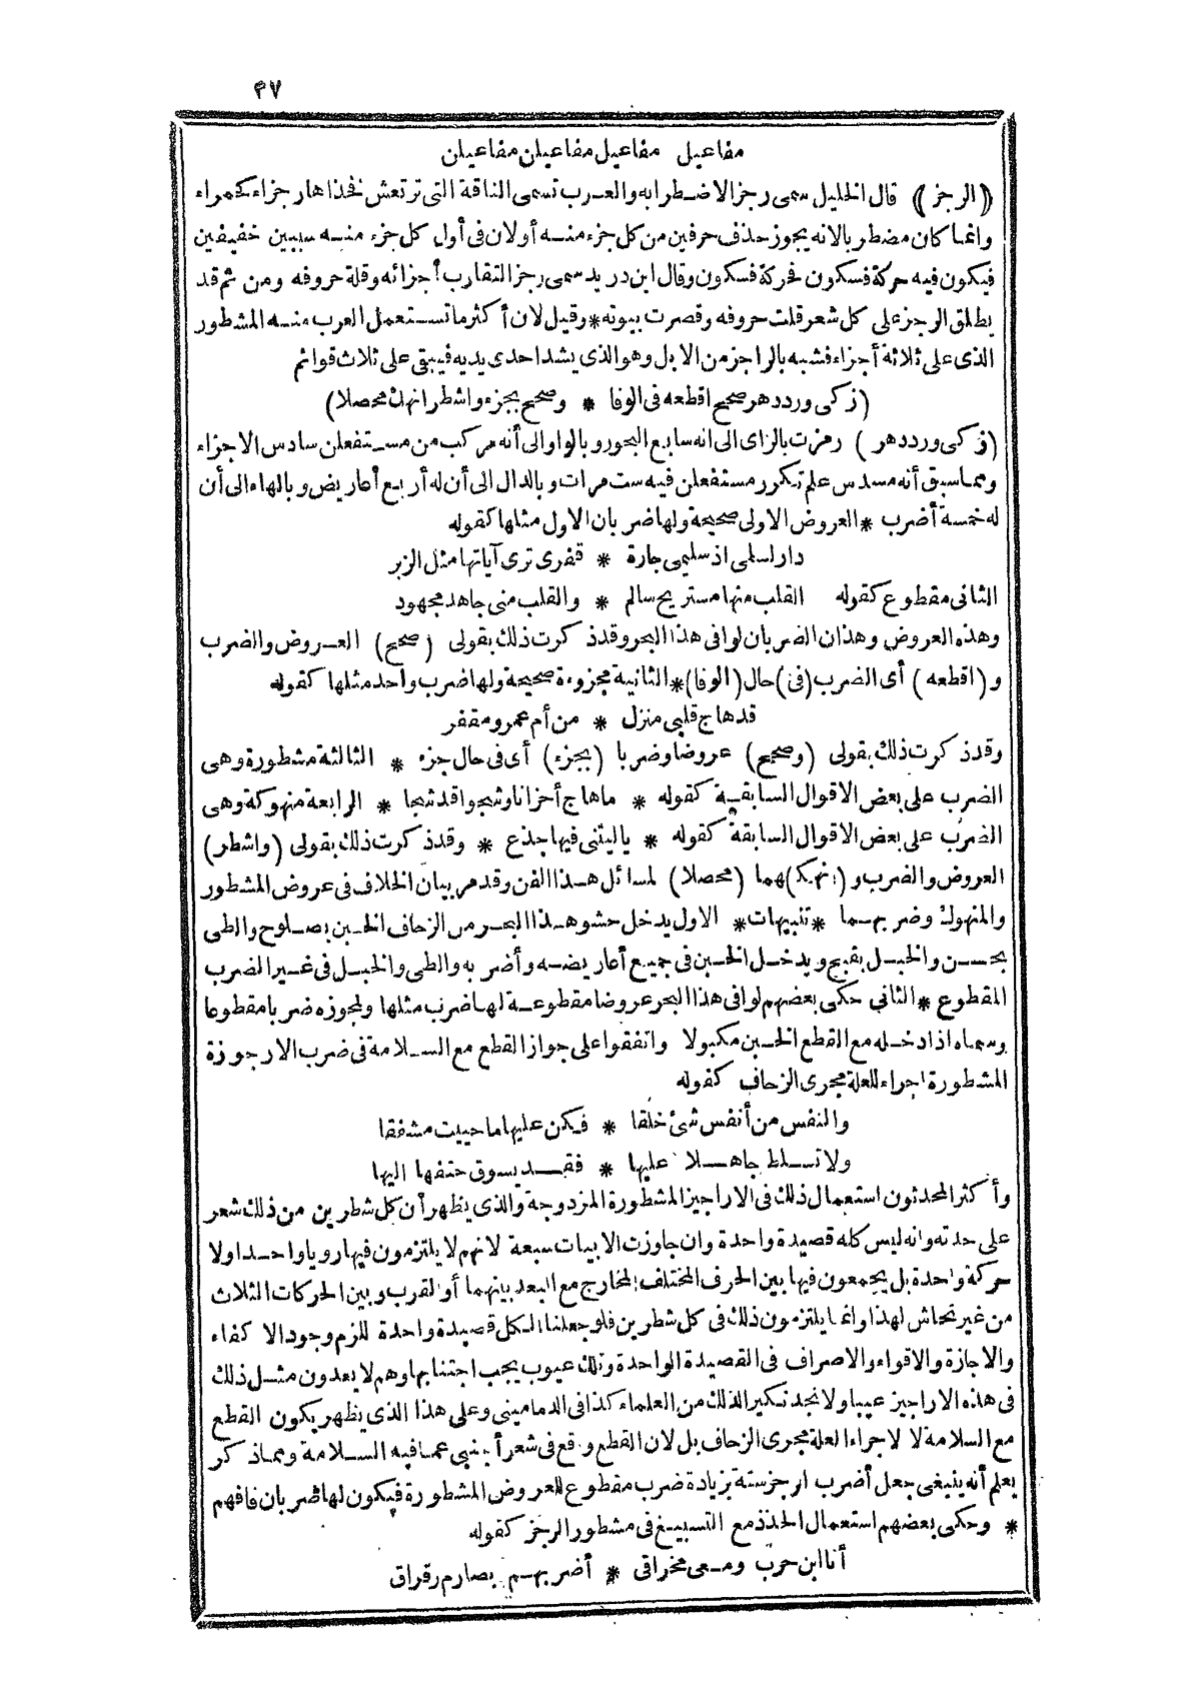 ٤٧
مفاعيل مفاعيل مفاعيلن مفاعيلن
(الرجز) قال الخليل سمى رجزا لاضطرابه والعرب تسمى الناقة التى ترتعش فخذاها رجزاء كحمراء
وانما كان مضطربا لانه يجوز حذف حرفين من كل جزء منه أو لان فى أول كل جزء منه سببين خفيفين
فيكون فيه حركة فسكون فحركة فسكون وقال ابن دريد سمى رجزا لتقارب أجزائه وقلة حروفه ومن ثم قد
يطلق الرجز على كل شعر قلت حروفه وقصرت بيوته * وقيل لان أكثر ما تستعمل العرب منه المشطور
الذى على ثلاثة أجزاء فشبه بالراجز من الابل وهو الذى يشد احدى يديه فيبقى على ثلاث قوائم
(زكى وردد هر صحح اقطعه فى الوفا * وصحح بجزء واشطر انهك محصلا)
(زكى وردد هر) رمزت بالزاى الى انه سابع البحور وبالواو الى أنه مركب من مستفعلن سادس الاجزاء
ومما سبق أنه مسدس علم تكرر مستفعلن فيه ست مرات وبالدال الى أن له أربع أعاريض وبالهاء الى أن
له خمسة أضرب * العروض الاولى صحيحة ولها ضربان الاول مثلها كقوله
دار لسلمى اذ سليمى جارة * قفرى ترى آياتها مثل الزبر
الثانى مقطوع كقوله القلب منها مستريح سالم * والقلب منى جاهد مجهود
وهذه العروض وهذان الضربان لوافى هذا البحر وقد ذكرت ذلك بقولى (صحح) العروض والضرب
و(اقطعه) أى الضرب (فى) حال (الوفا) * الثانية مجزوءة صحيحة ولها ضرب واحد مثلها كقوله
قد هاج قلبى منزل * من أم عمرو مقفر
وقد ذكرت ذلك بقولى (وصحح) عروضا وضربا (بجزء) أى فى حال جزء * الثالثة مشطورة وهى
الضرب على بعض الاقوال السابقية كقوله * ما هاج أحزانا وشجوا قد شجا * الرابعة منهوكة وهى
الضرب على بعض الاقوال السابقة كقوله * يا ليتنى فيها جذع * وقد ذكرت ذلك بقولى (واشطر)
العروض والضرب و(انهك) هما (محصلا) لمسائل هذا الفن وقد مر بيان الخلاف فى عروض المشطور
والمنهوك وضربهما * تنبيهات * الاول يدخل حشو هذا البحر من الزحاف الخبن بصلوح والطى
بحسن والخبل بقبح ويدخل الخبن فى جميع أعاريضه وأضربه والطى والخبل فى غير الضرب
المقطوع * الثانى حكى بعضهم لوافى هذا البحر عروضا مقطوعة لها ضرب مثلها ولمجوزه ضربا مقطوعا
وسماه اذا دخله مع القطع الخبن مكبولا واتفقوا على جواز القطع مع السلامة فى ضرب الارجوزة
المشطورة اجراء للعلة مجرى الزحاف كقوله
والنفس من أنفس شئ خلقا * فكن عليها ما حييت مشفقا
ولا تسلط جاهلا عليها * فقد يسوق حتفها اليها
وأكثر المحدثون استعمال ذلك فى الاراجيز المشطورة المزدوجة والذى يظهر أن كل شطرين من ذلك شعر
على حدته وانه ليس كله قصيدة واحدة وان جاوزت الابيات سبعة لانهم لا يلتزمون فيها رويا واحدا ولا
حركة واحدة بل يجمعون فيها بين الحرف المختلف المخارج مع البعد بينهما أو القرب وبين الحركات الثلاث
من غير تحاش لهذا وانما يلتزمون ذلك فى كل شطرين فلو جعلنا الكل قصيدة واحدة للزم وجود الاكفاء
والاجازة والاقواء والاصراف فى القصيدة الواحدة وتلك عيوب يجب اجتنابها وهم لا يعدون مثل ذلك
فى هذه الاراجيز عيبا ولا نجد نكيرا لذلك من العلماء كذا فى الدمامينى وعلى هذا الذى يظهر يكون القطع
مع السلامة لا لاجراء العلة مجرى الزحاف بل لان القطع وقع فى شعر أجنبى عما فيه السلامة ومما ذكر
يعلم أنه ينبغى جعل أضرب الرجز ستة بزيادة ضرب مقطوع للعروض المشطورة فيكون لها ضربان فافهم
* وحكى بعضهم استعمال الحذذ مع التسبيغ فى مشطور الرجز كقوله
أنا ابن حرب ومعى مخراقى * أضربهم بصارم رقراق